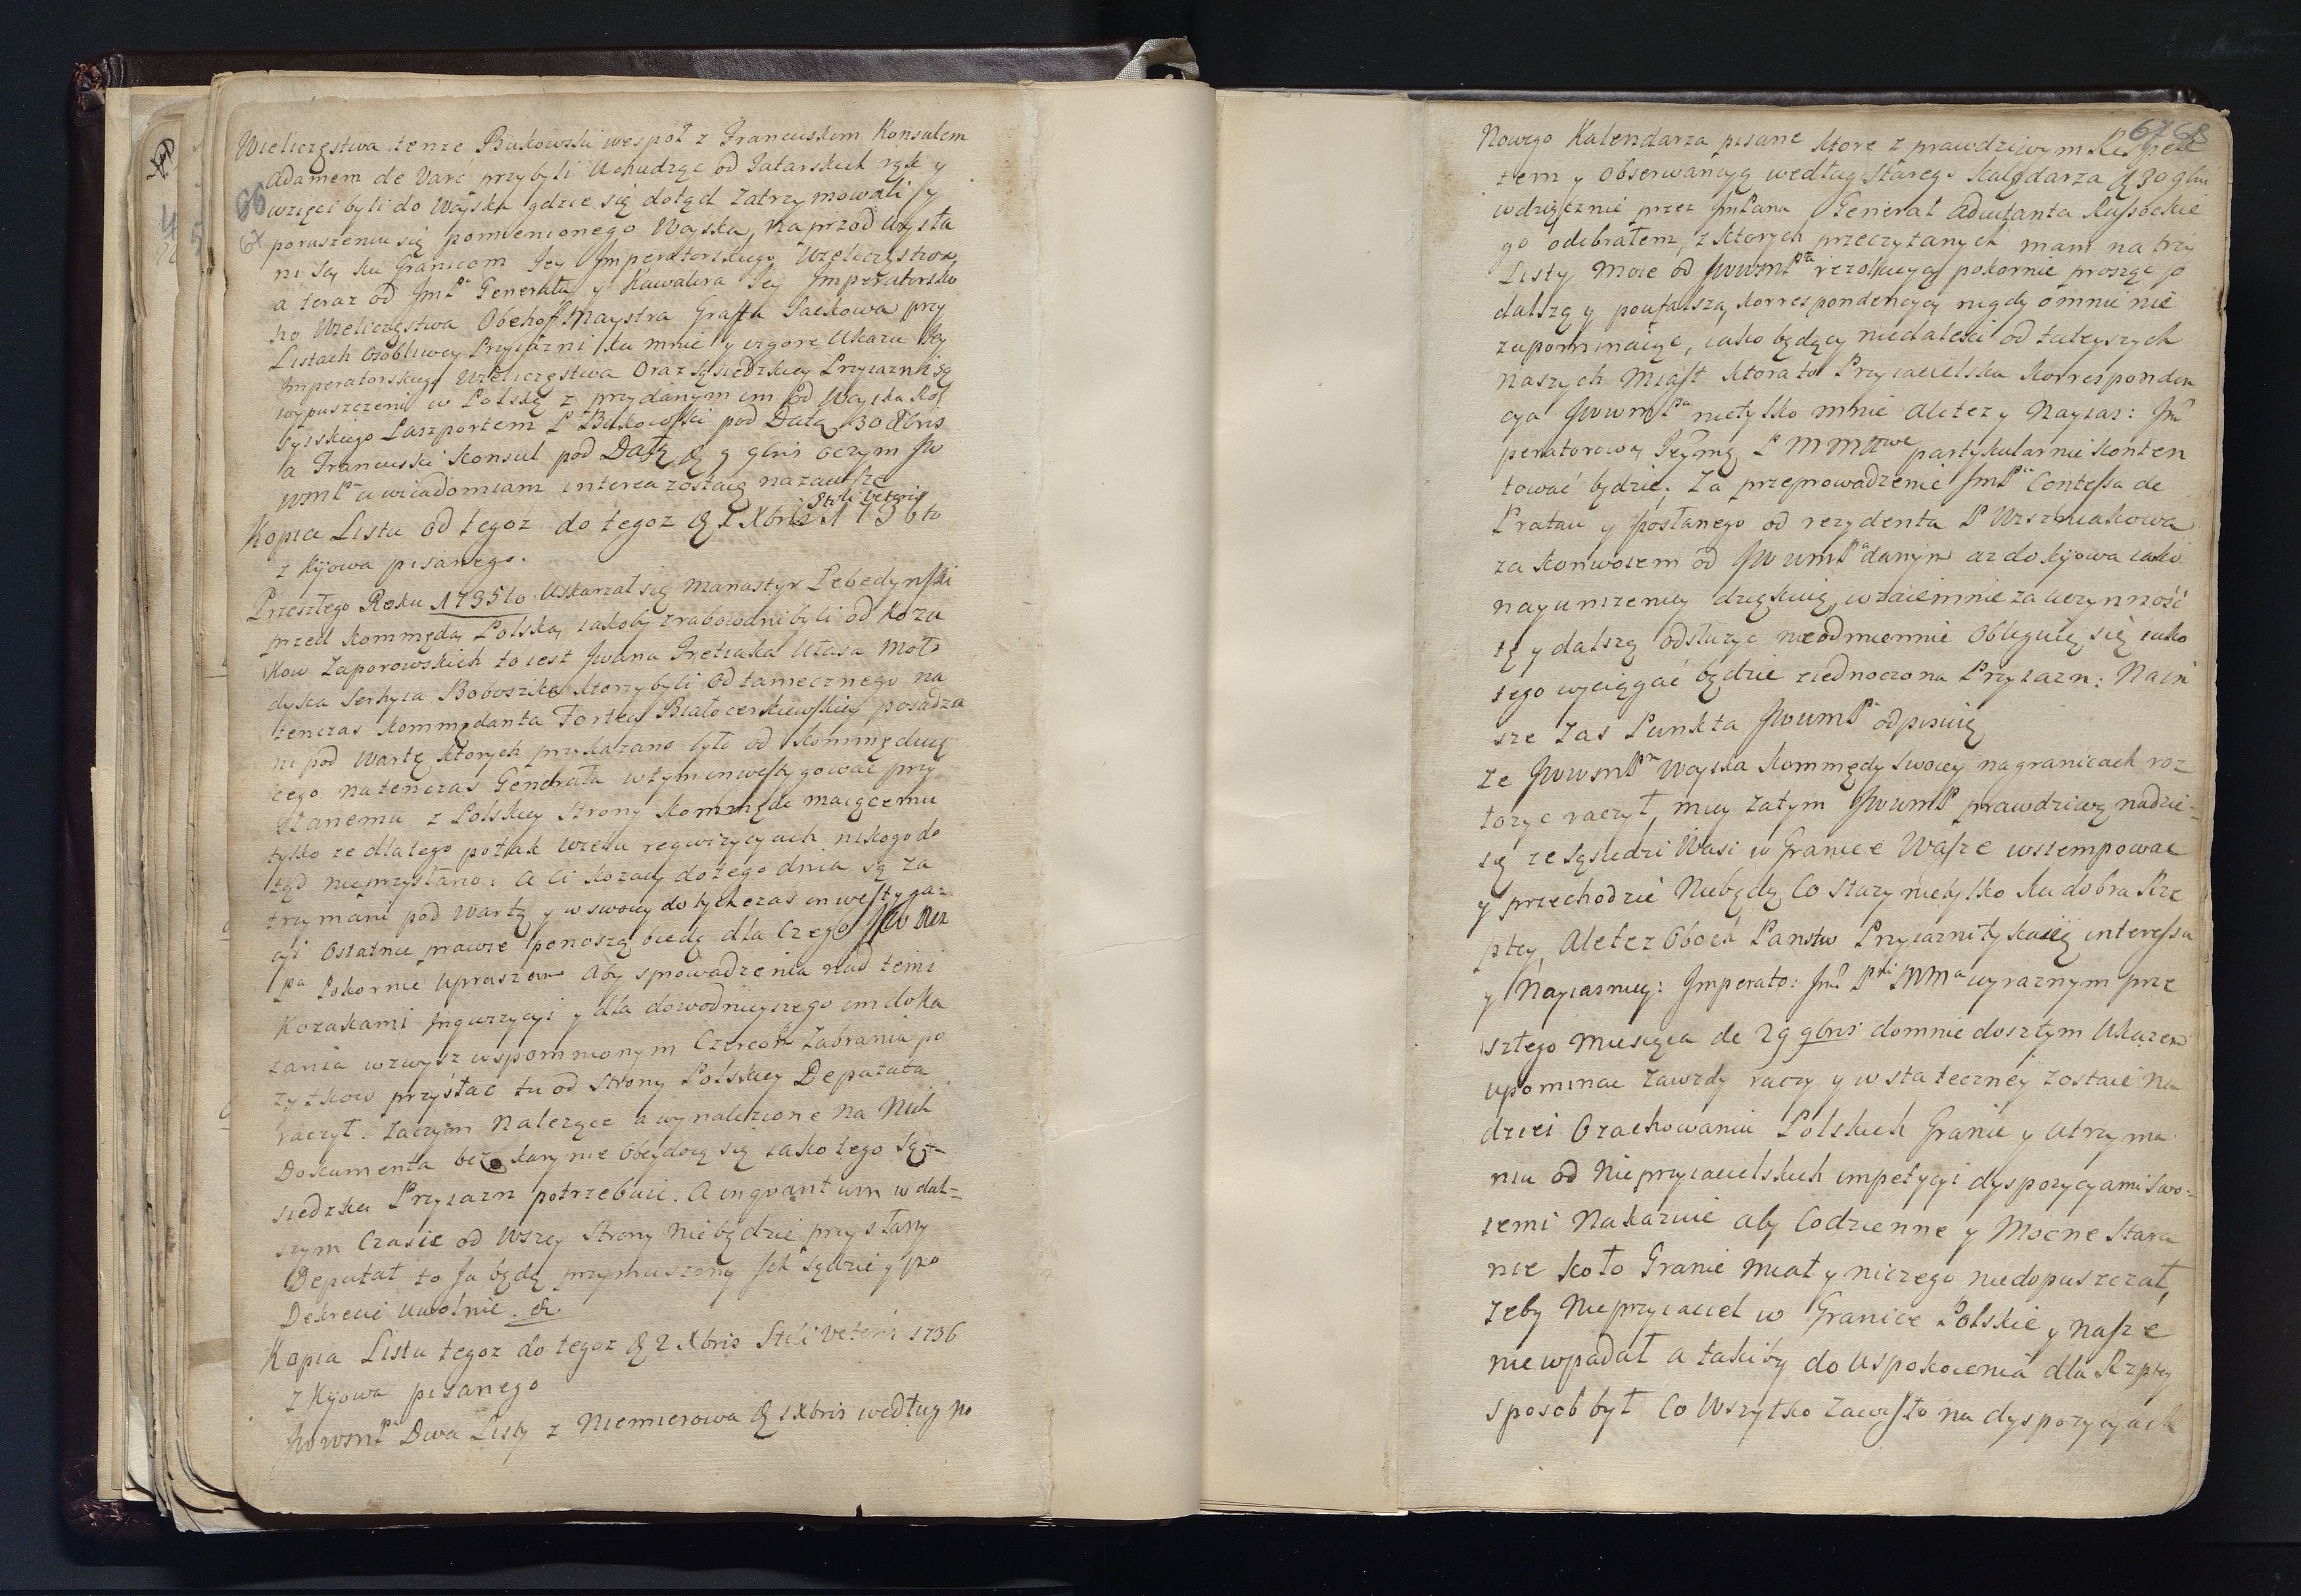 Wieliczęstwa tenze Bukowski wespoł z Francuskim Konsulem
Adamem de Varć przybyli Uchudząc od Tatarskich ręk y
66
67
wzięci byli do Woyska gdzie się dotąd Zatrzymowali y
poruszeniu się pomienionego Woyska, na przod Wysła
ni są ku Granicom Jey Imperatorskiego Wieliczęstwa
a teraz od JmPa Generała y Kawalera Jey Imperatorsko
ho Wieliczęstwa Obehoffmaystra Graffa Siekowa przy
Listach Osobliwey Przyiazni ku mnie y wzgore Ukazu Jey
Imperatorskiego Wieliczęstwa Oraz Sąsiedzkiey Przyiazni są
wypuszczeni w Polskę z przydanym im od Woyska Ros
syiskiego Paszportem P Bukowski pod Datą 30 Xbris
a Francuski Konsul pod Datą d 9 9bris oczym Jw
wmPa uwiadomiam interea zostaię nazawsze
Kopia Listu od tegoz do tegoz d 1 Xbris Stili Veteris 1736to
z Kijowa pisanego.
Przeszłego Roku 1735to. Uskarzał się Manastyr Lebedynski
przed Kommędą Polską iakoby zrabowani byli od Koza
kow Zaporowskich to iest Iwana Tretiaka Własa Moło
dyka Serhyia Boboszka ktorzy byli od tamecznego na
tenczas Kommędanta Fortecy Białocerkiewskiey posadze
ni pod Wartę ktorych przykazano było od kommęduią
cego natenczas Generała wtym inwestygować przy
słanemu z Polskiey Strony Kommędę maiącemu
tylko ze dlatego potak Wielu regwizycyach nikogo do
tąd nieprzysłano: A Ci Kozacy dotego dnia są Za
trzymani pod Wartą y w swoiey dotychczas inwestyga-
cyi Ostatnie prawie ponoszą biedę dla Czego JW
Pa Pokornie Upraszam Aby sprowadzenia nad temi
Kozakami Ingwizycyi y dla dowodnieyszego im doka
zania wzwysz wspomnionym Czercom Zabrania po
zytkow przysłac tu od Strony Polskiey Deputata
raczył. Zaczym Nalezące a wynaliezione na Nich
Dokumenta bez kary nie Obeydoią się iako tego Są-
siedzka Przyiazn potrzebuie. A inquantum w dal-
szym Czasie od Wszey Strony Niebędzie przysłany
Deputat to Ja będę przymuszony Ich sądzić y po
Dekrecie uwolnie. &.
Kopia Listu tegoz do tegoz d 2 Xbris Stili Veteris 1736
Z Kijowa pisanego
JwwmPa Dwa Listy z Niemierowa d 1 Xbris według No
67 68
Nowego Kalendarza pisane ktore z prawdziwym Respek
tem y Obserwancyą według Starego Kalędarza d 30 9bris
wdzięcznie przez JmPana Generał Adiutanta Russockie
go odebrałem, z ktorych przeczytanych mam na trzy
Listy Moie od JwwmPa rezolucyą pokornie proszę o
dalszą y poufalszą korrespondencyą nigdy omnie nie
zapominaiąc, iako będący niedaleki od tuteyszych
naszych Miast ktora to Przyiacielska Korresponden
cya JwwmPa nietylko mnie Aletez y Nayias: Im
peratorowę Jeymę P MMttwe partykularnie konten
tować będzie. Za przeprowadzenie JmPa Contessa de
Pratau y posłanego od rezydenta P Wiszniakowa
za konwoiem od JwwmPa danym az do Kijowa iako
nayunizeniey dziękuię, wzaiemnie za uczynność
tę y dalszą odsłuzyc nieodmiennie Obliguię się iako
tego wyciągać będzie ziednoczona Przyiazn: Na in
sze Zas Punkta JwwmPa odpisuię
Ze JwwmPa Woyska Kommędy Swoiey na granicach roz
łozyc raczył, miey Zatym JwwmP prawdziwą nadzie-
ię ze Sąsiedzi Wasi w Granice Wasze wstempowac
y przechodzić Niebędą Co Słuzy nietylko ku dobra Rze
ptey, Aletez Oboia Panstw Przyiazni tykaiię interessa
y Nayiasniey: Imperato: Im Pni MMa wyraznym prze
szłego Miesiąca de 29 9bris domnie doszłym Ukazem
upominac Zawzdy raczy y w stateczney Zostaie Na
dziei Ozachowaniu Polskich Granic y Utrzyma
niu od Nieprzyiacielskich impetycyi dyspozycyami Swo-
iemi Nakazuie aby Codzienne y Mocne Stara
nie koło Granic Miał y niczego niedopuszczał,
Zeby Nieprzyiaciel w Granice Polskie y nasze
niewpadał a takiby do Uspokoienia dla Rzptey
sposob był Co Wszytko Zawisło na dyspozycyach